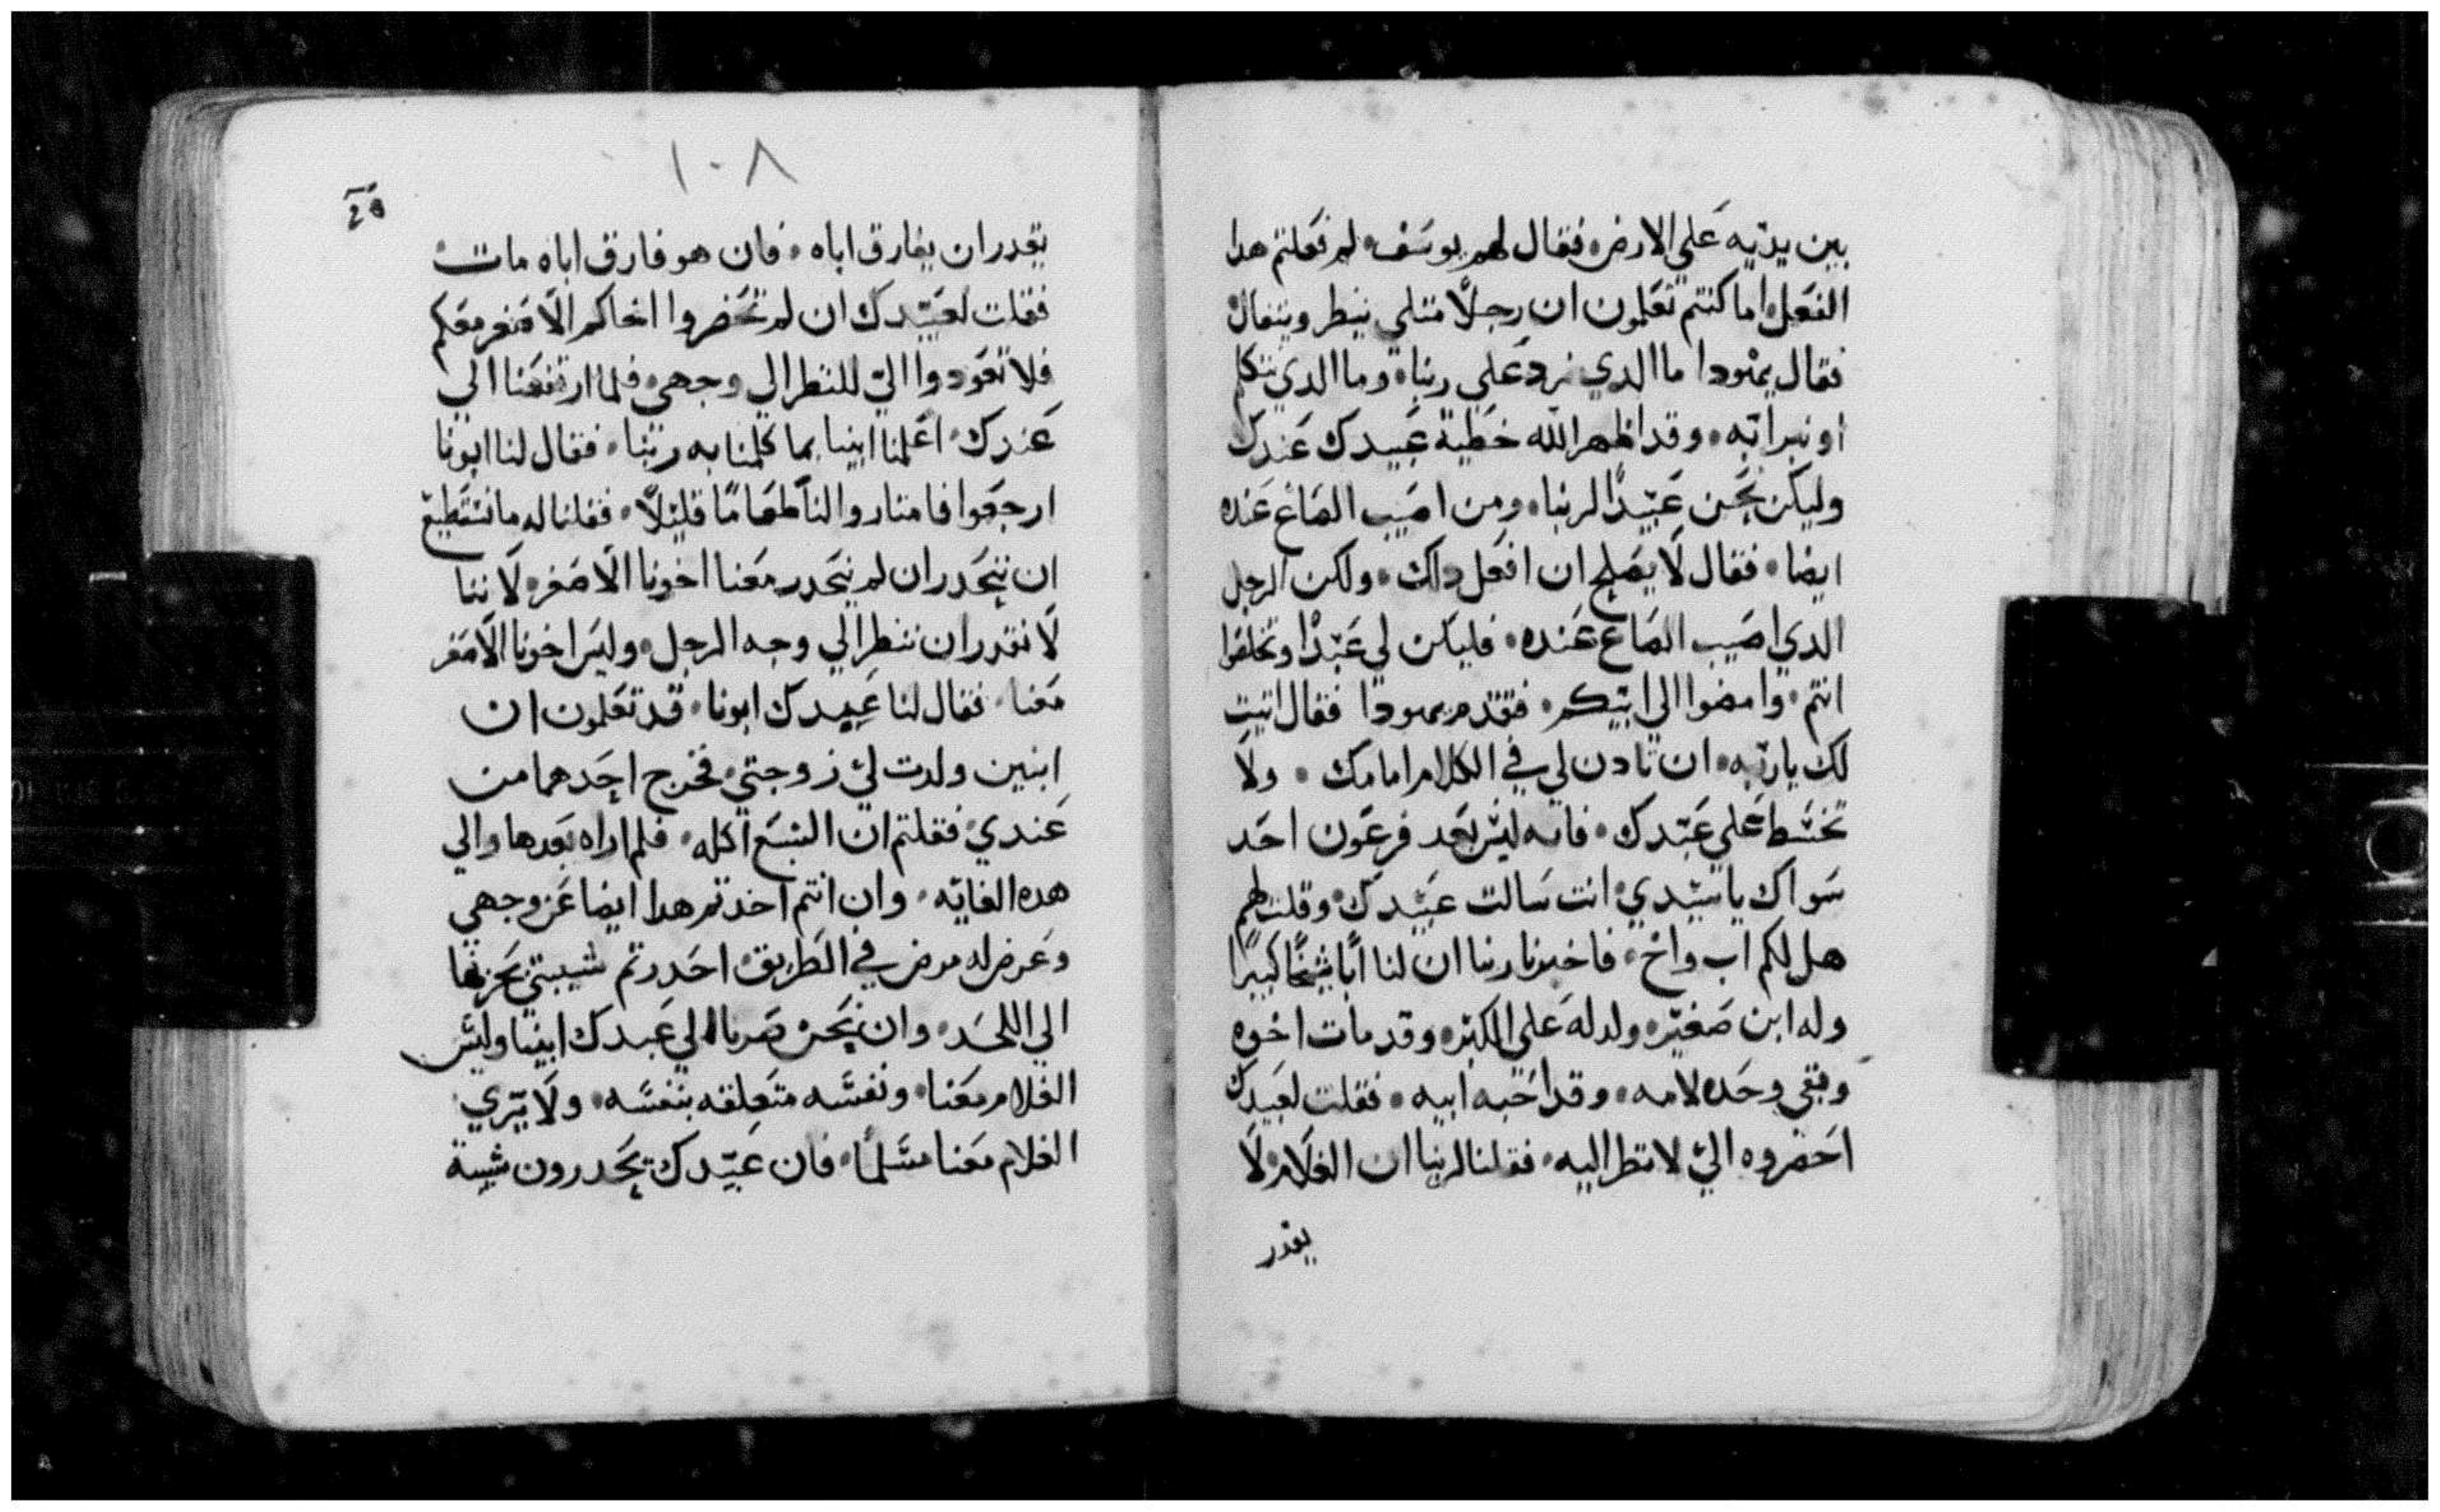 بين يديه علي الارض، فقال لهم يوسف، لم فعلتم هدا
الفعل، اما كنتم تعلمون ان رجلًا متلي ينطر ويتفال
فقال يهودا ما الدي نرد علي ربنا، وما الدي نتكلم
او نبراتبه، وقد اظهر الله خطية عبيدك عندك
وليكن نحن عبيدًا لربنا، ومن اصيب الصاع عنده
ايضا، فقال لا يصلح ان افعل داك، ولكن الرجل
الدي اصيب الصاع عنده، فليكن لي عبدًا وتخلفوا
انتم، وامضوا الي ابيكم، فتقدم يهودا فقال اتيت
لك يا ربه، ان تادن لي في الكلام امامك، ولا
تخشط علي عبدك، فانه ليس بعد فرعون احد
سواك يا سيدي، انت سالت عبيدك، وقلت لهم
هل لكم اب واخ، فاخبرنا ربنا ان لنا ابًا شيخًا كبيرًا
وله ابن صغير، ولد له علي الكبر، وقد مات اخوه
وبقي وحده لامه، وقد احبه ابيه، فقلت لعبيدك
احضروه اليّ لانطر اليه، فقلنا لربنا ان الغلام لا
يقدر
١٠٨
يقدر ان يفارق اباه، فان هو فارق اباه مات
فقلت لعبيدك ان لم تحضروا اخاكم الاصغر معكم
فلا تعودوا اليّ للنطر الي وجهي، فلما ارتفعنا الي
عندك، اعلمنا ابينا بما كلمنا به ربنا، فقال لنا ابونا
ارجعوا فامتاروا لنا طعامًا قليلًا، فقلنا له ما نستطيع
ان ننحدر ان لم ينحدر معنا اخونا الاصغر، لاننا
لا نقدر ان ننطر الي وجه الرجل، وليس اخونا الاصغر
معنا، فقال لنا عبيدك ابونا، قد تعلمون ان
ابنين ولدت لي زوجتي، فخرج احدهما من
عندي، فقلتم ان السبع اكله، فلم اراه بعدها والي
هده الغايه، وان انتم اخدتم هدا ايضا عن وجهي
وعرض له مرض في الطريق، احدرتم شيبتي بحزنها
الي اللحد، وان نحن صرنا الي عبدك ابينا وليس
الغلام معنا، ونفسه متعلقه بنفسه، ولا يري
الغلام معنا مسلمًا، فان عبيدك يحدرون شيبة